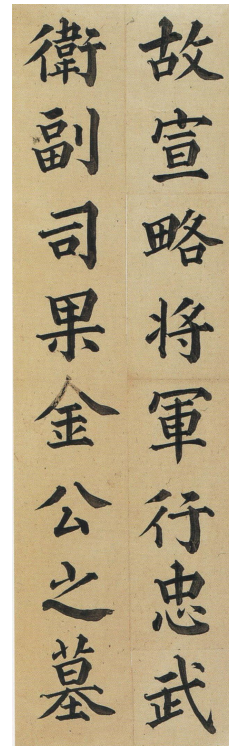 故宣略将軍行忠武
衛副司果金公之墓